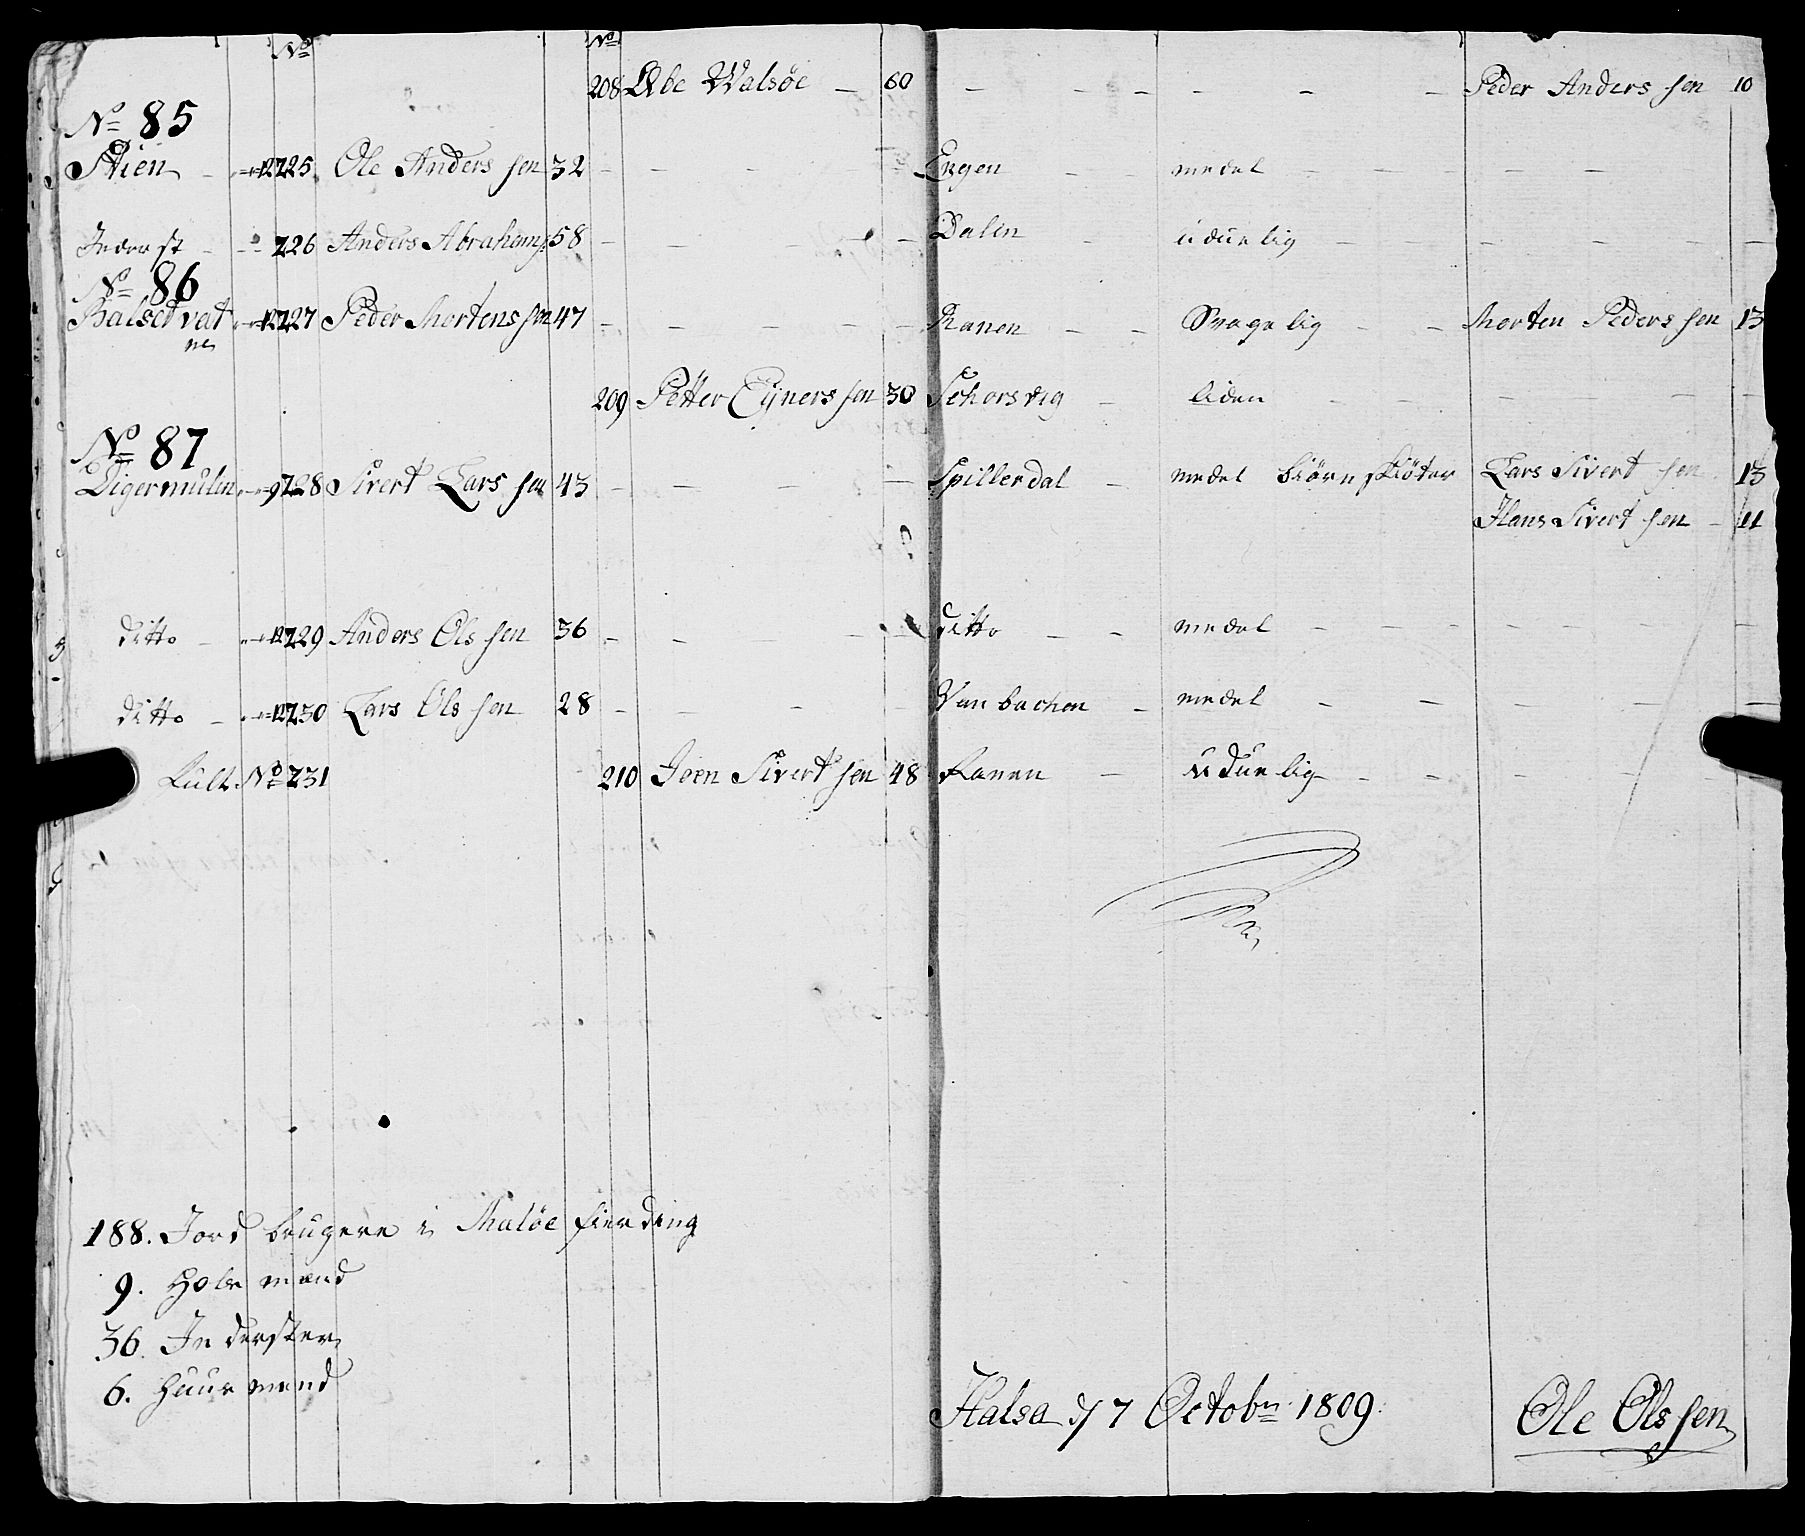 No No
208 Abe Walsøe - 60 - - - - - - Peder Anders sen 10
No 85
Stien - 12 225 Ole Anders sen 32 - - - Engen - - medel - - - - -
Inderst - 226 Anders Abrahams 58 - - - Dalen - udue lig - - - - -
No 86
Balset vat 12 227 Peder Mortens sen 47 - - - - Ranen - - Svage lig - - Morten Peders sen 13
ne
209 Petter Ejners sen 30 Schors vig - liden - - - - -
No 87
Digermulen 9 228 Sivert Lars sen 43 - - - - Spillerdal - medel biørn skiøter Lars Sivert sen 13
Hans Sivert sen - 11
ditto - 12 229 Anders Ols sen 36 - - - ditto - - medel - - - - - -
ditto - 12 230 Lars Ols sen 28 - - - Van bachen - medel - - - - -
Lult No 231 210 Joen Sivert sen 48 Ranen - udue lig - - - -
188. Jord brugere i Maløe fierding
9. Hols mænd
36. In derster
6. Huus mænd
Halsa d 7 Octobr 1809.
Ole Ols sen